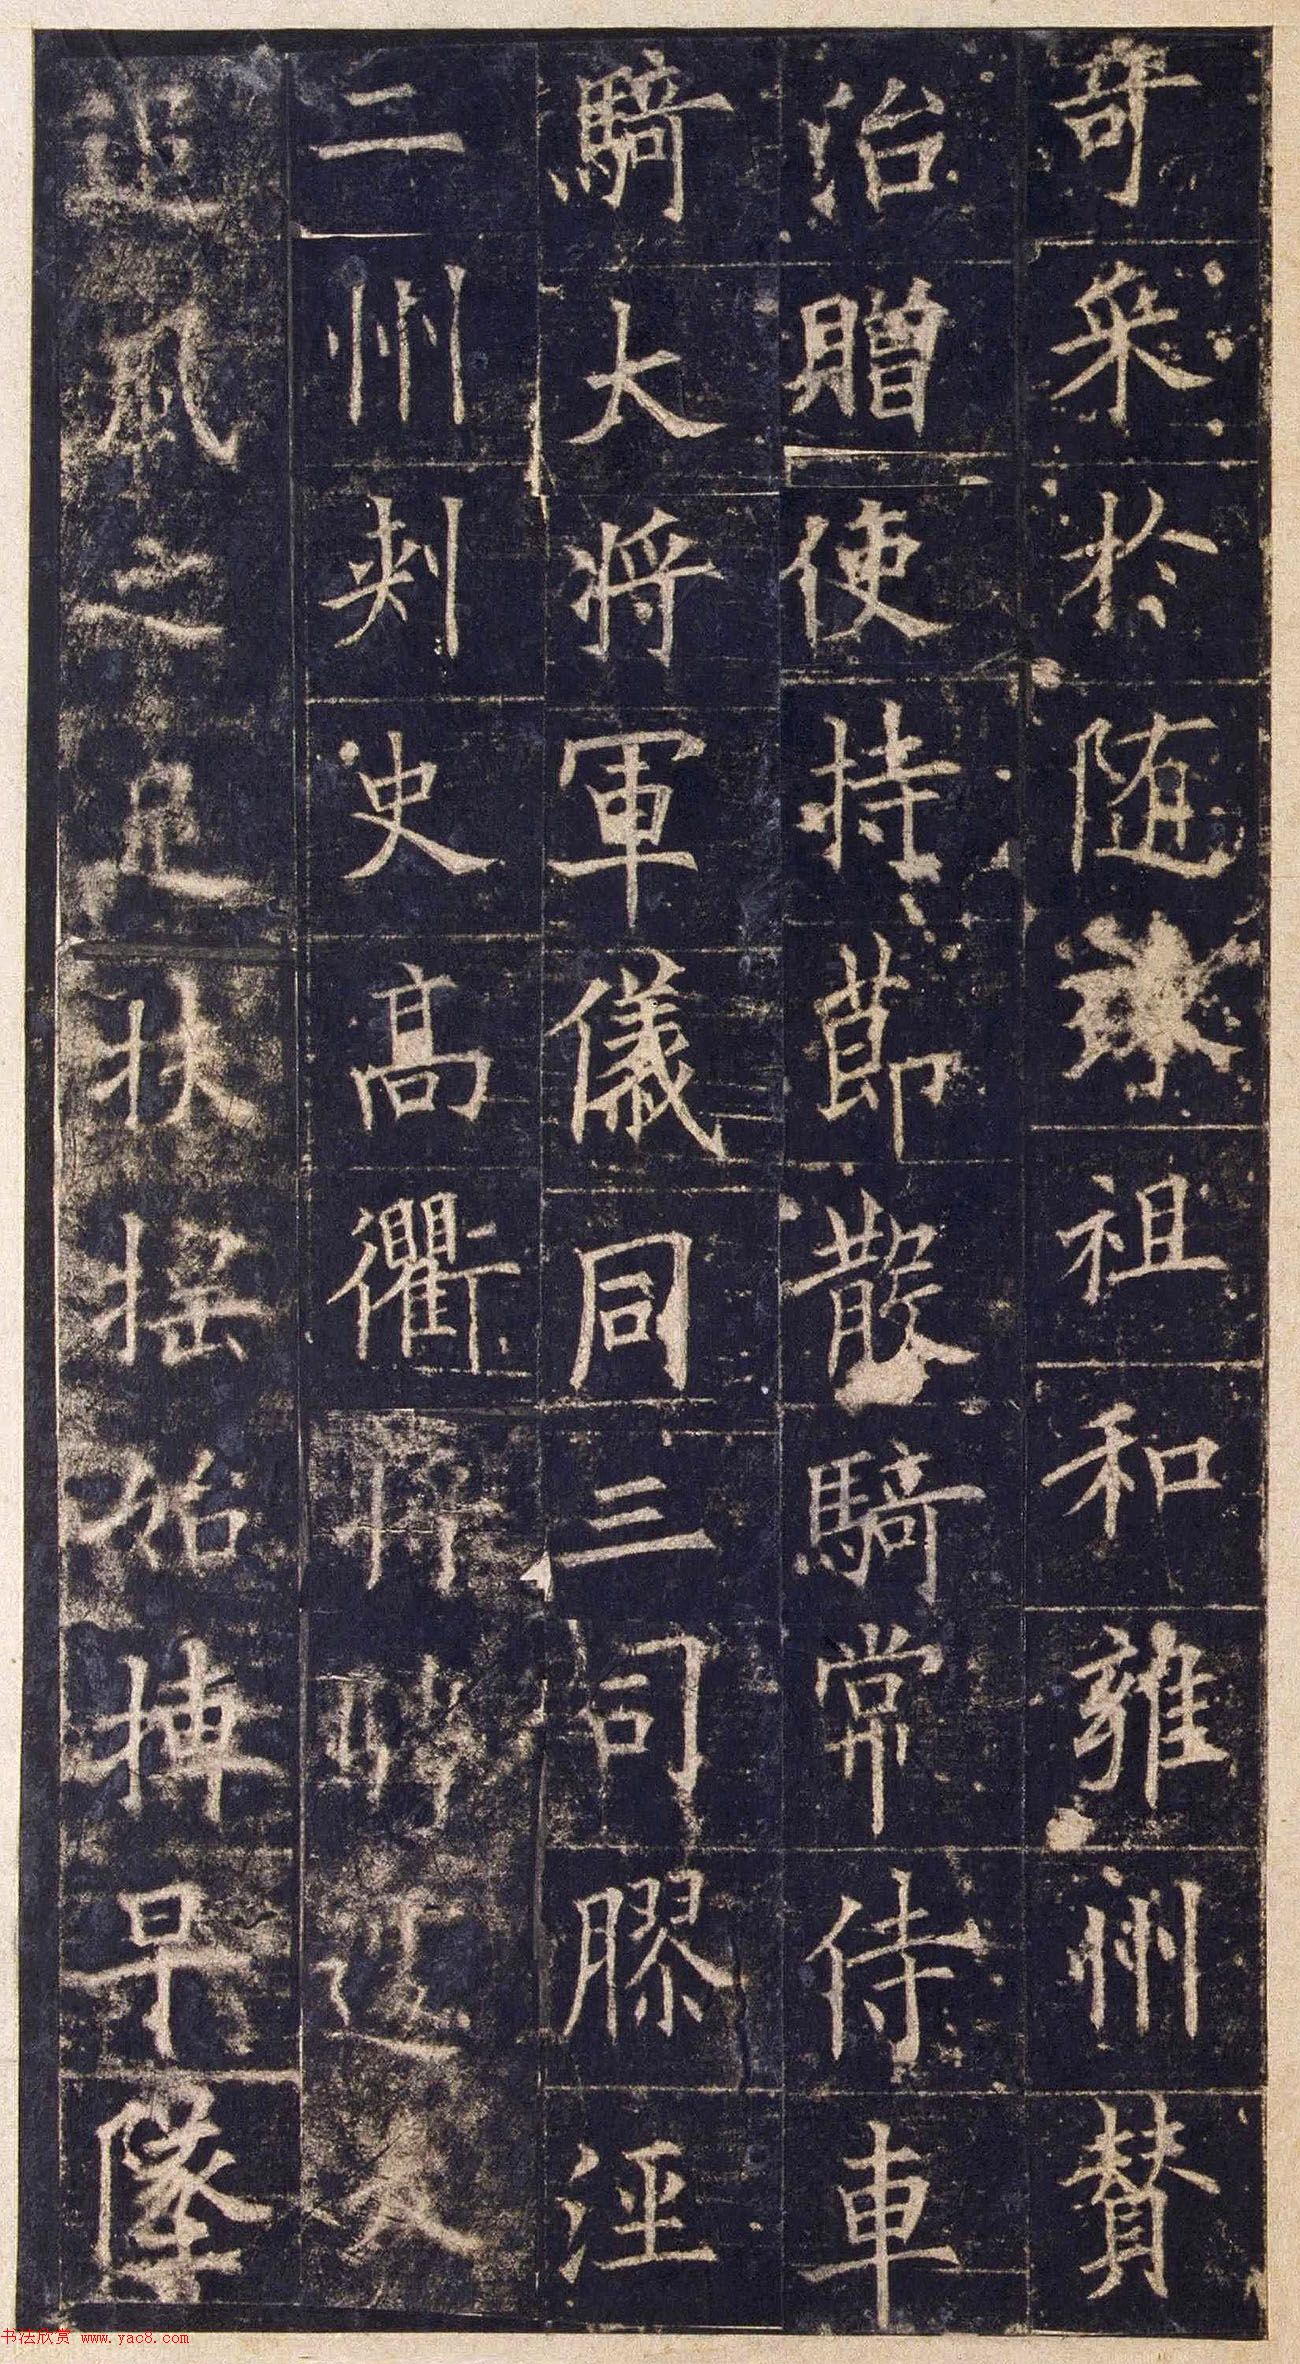 奇采於随珠祖和雍州贊
治贈使持節散騎常侍車
騎大將軍儀同三司膠涇
二州刺史高衢將騁
追風之足扶搖始摶早墜
书法欣赏 www.yac8.com